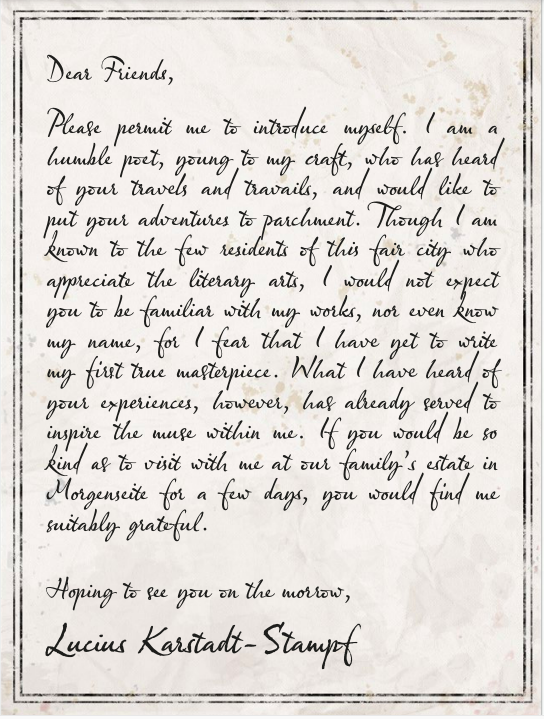 Dear Friends,
Please permit me to introduce myself. I am a
humble poet, young to my craft, who has heard
of your travels and travails, and would like to
put your adventures to parchment. Though I am
known to the few residents of this fair city who
appreciate the literary arts, I would not expect
you to be familiar with my works, nor even know
my name, for I fear that I have yet to write
my first true masterpiece. What I have heard of
your experiences, however, has already served to
inspire the muse within me. If you would be so
kind as to visit with me at our family's estate in
Morgenseite for a few days, you would find me
suitably grateful.
Hoping to see you on the morrow,
Lucius Karstadt-Stampf